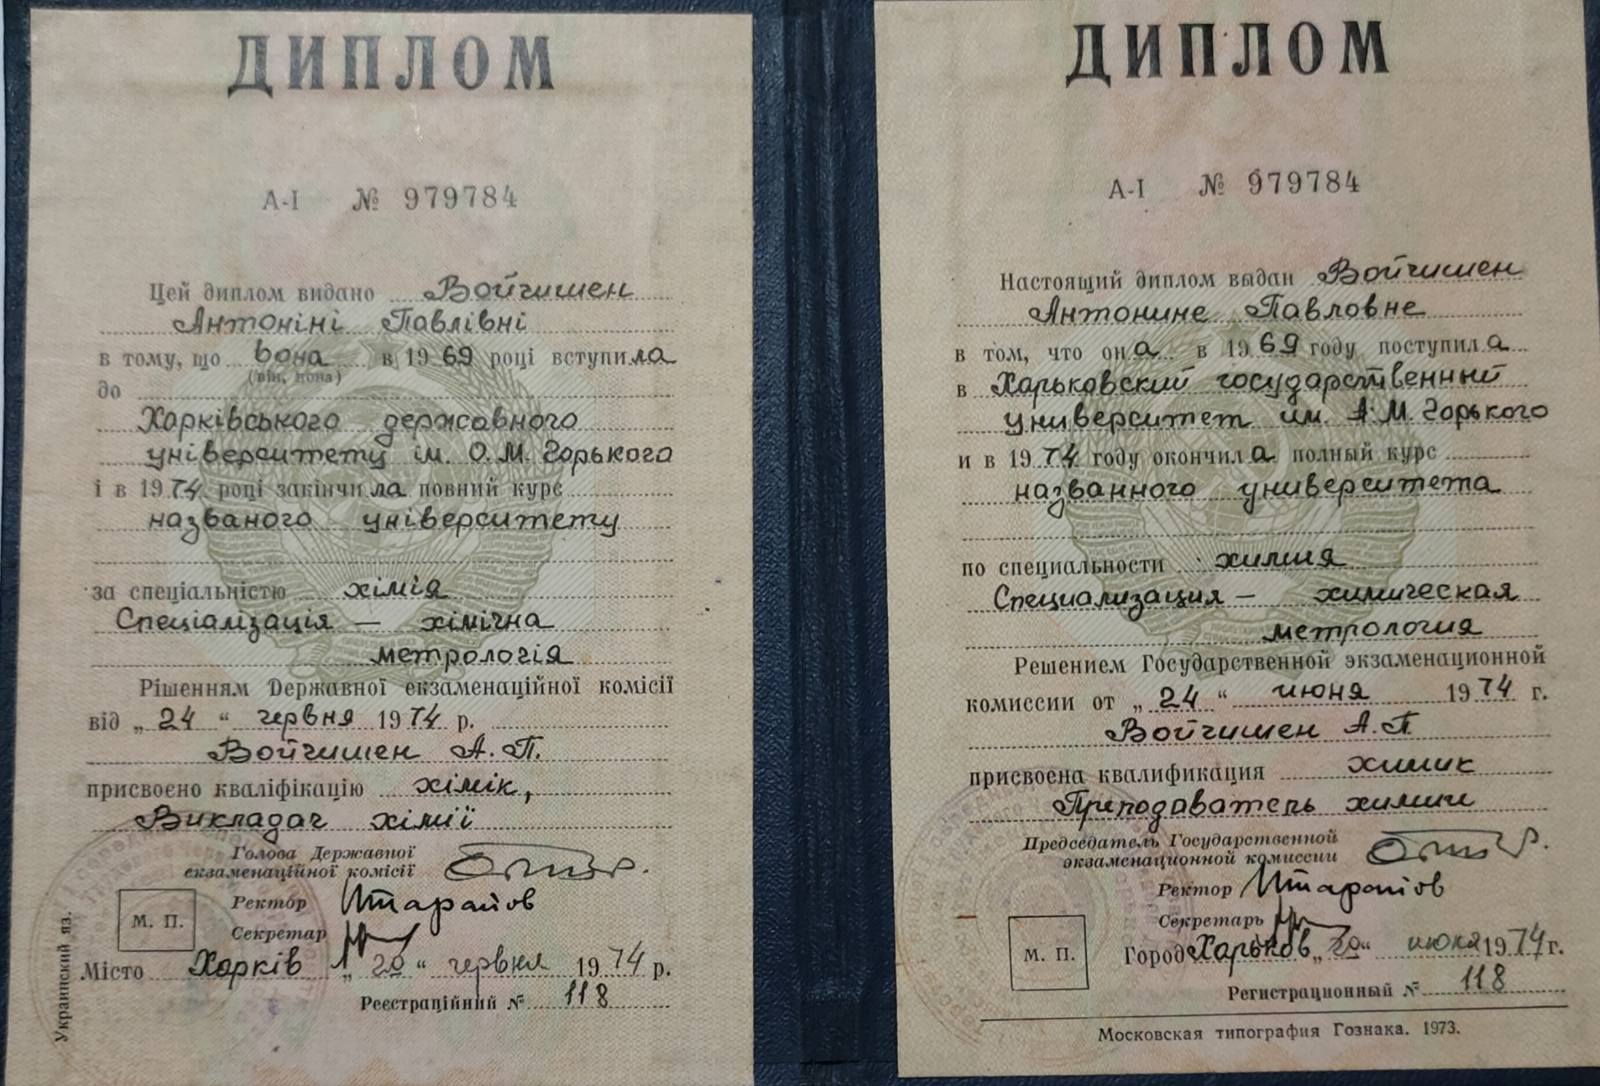 ДИПЛОМ
А-I № 979784
Цей диплом видано Войчишен
Антоніні Павлівні
в тому, що вона в 1969 році вступила
(він, вона)
до
Харківського державного
університету ім. О.М. Горького
і в 1974 році закінчила повний курс
названого університету
за спеціальністю хімія
Спеціалізація — хімічна
метрологія
Рішенням Державної екзаменаційної комісії
від „24“ червня 1974 р.
Войчишен А.П.
присвоено кваліфікацію хімік,
Викладач хімії
Голова Державної
екзаменаційної комісії
Ректор
Секретар
М. П.
Місто Харків „20“ червня 1974 р.
Реєстраційний № 118
Украинский яз.
ДИПЛОМ
А-I № 979784
Настоящий диплом выдан Войчишен
Антонине Павловне
в том, что она в 1969 году поступила
в Харьковский государственный
университет им. А.М. Горького
и в 1974 году окончила полный курс
названного университета
по специальности химия
Специализация — химическая
метрология
Решением Государственной экзаменационной
комиссии от „24“ июня 1974 г.
Войчишен А.П.
присвоена квалификация химик
Преподаватель химии
Председатель Государственной
экзаменационной комиссии
Ректор
Секретарь
М. П.
Город Харьков „20“ июня 1974 г.
Регистрационный № 118
Московская типография Гознака. 1973.